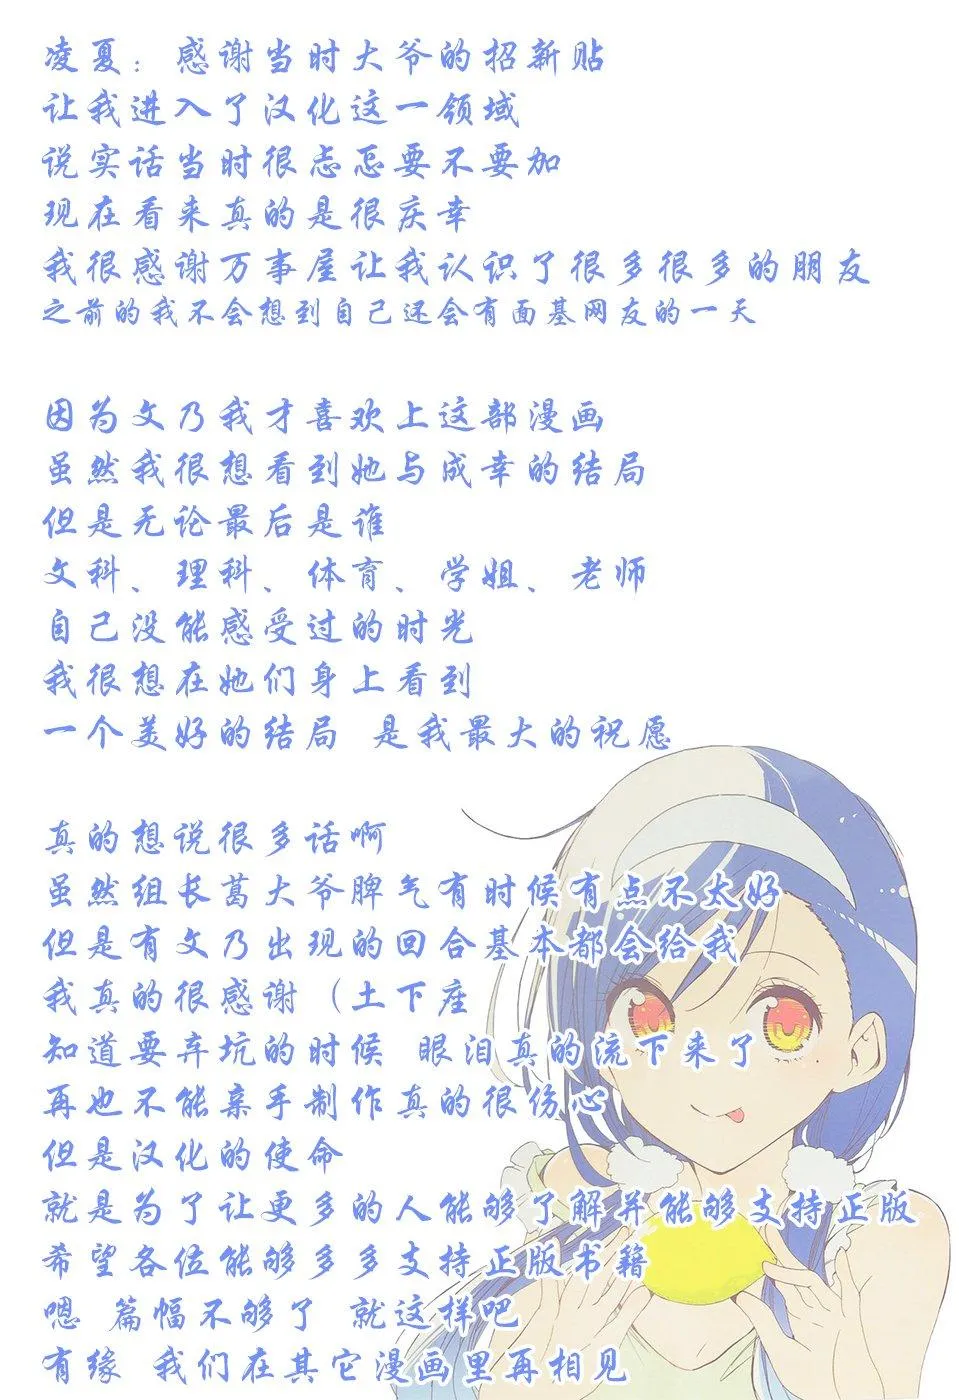 凌夏：感谢当时大爷的招新贴
让我进入了汉化这一领域
说实话当时很忐忑要不要加
现在看来真的是很庆幸
我很感谢万事屋让我认识了很多很多的朋友
之前的我不会想到自己还会有面基网友的一天
因为文乃我才喜欢上这部漫画
虽然我很想看到她与成幸的结局
但是无论最后是谁
文科、理科、体育、学姐、老师
自己没能感受过的时光
我很想在她们身上看到
一个美好的结局 是我最大的祝愿
真的想说很多话啊
虽然组长葛大爷脾气有时候有点不太好
但是有文乃出现的回合基本都会给我
我真的很感谢（土下座
知道要弃坑的时候 眼泪真的流下来了
再也不能亲手制作真的很伤心
但是汉化的使命
就是为了让更多的人能够了解并能够支持正版
希望各位能够多多支持正版书籍
嗯 篇幅不够了 就这样吧
有缘 我们在其它漫画里再相见